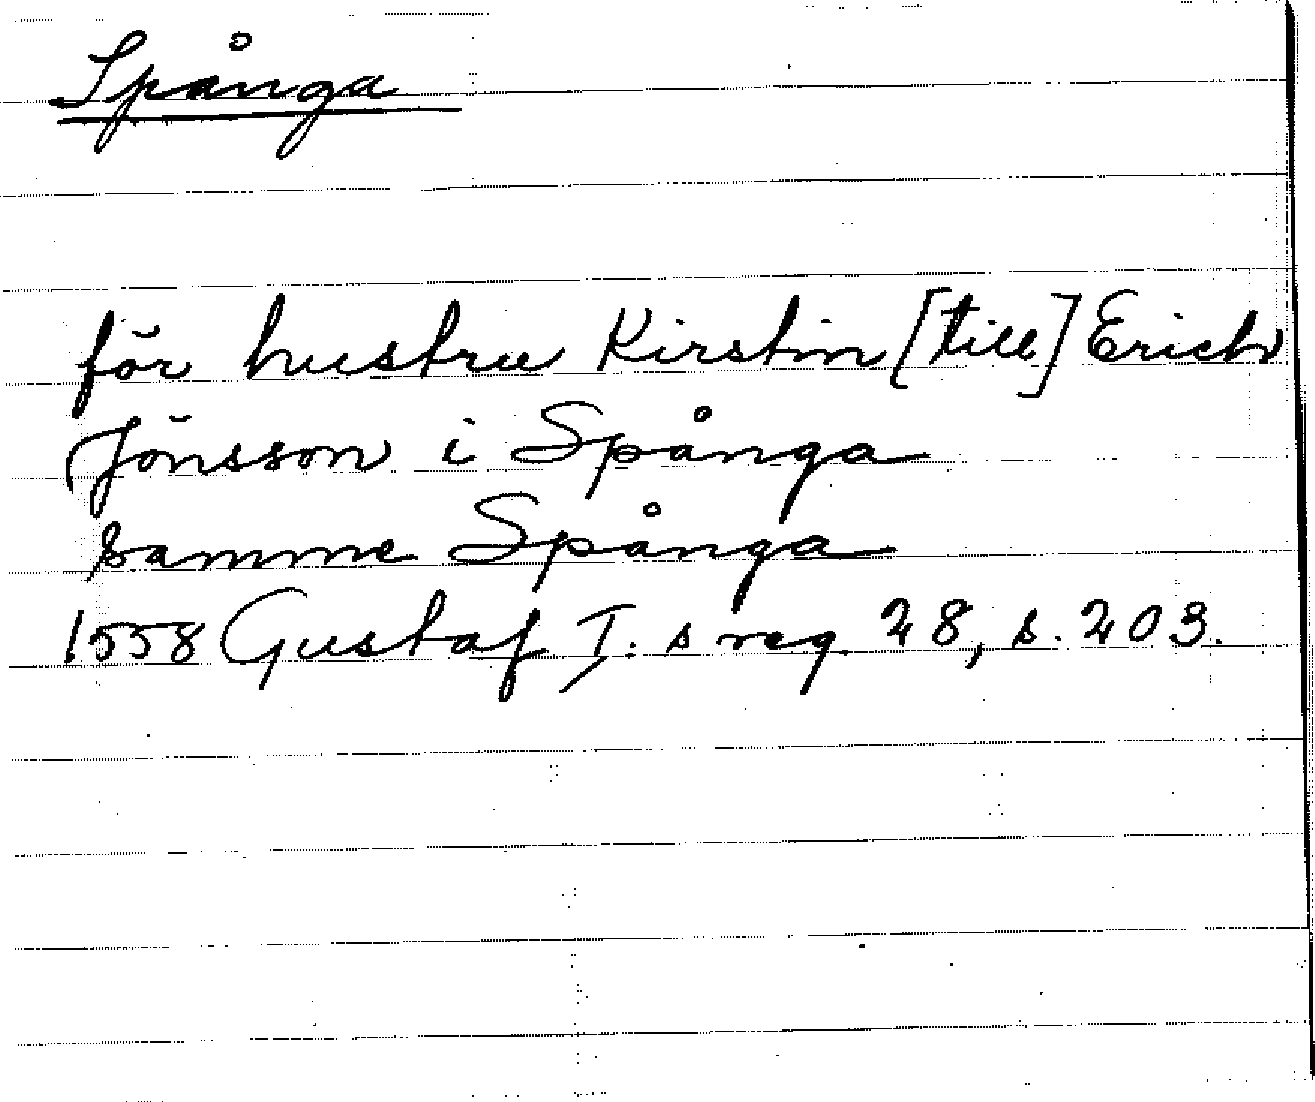 Spånga
för hustru Kirstin [till] Erich
Jönsson i Spånga
samme Spånga
1558 Gustaf I:s reg. 28, s. 203.